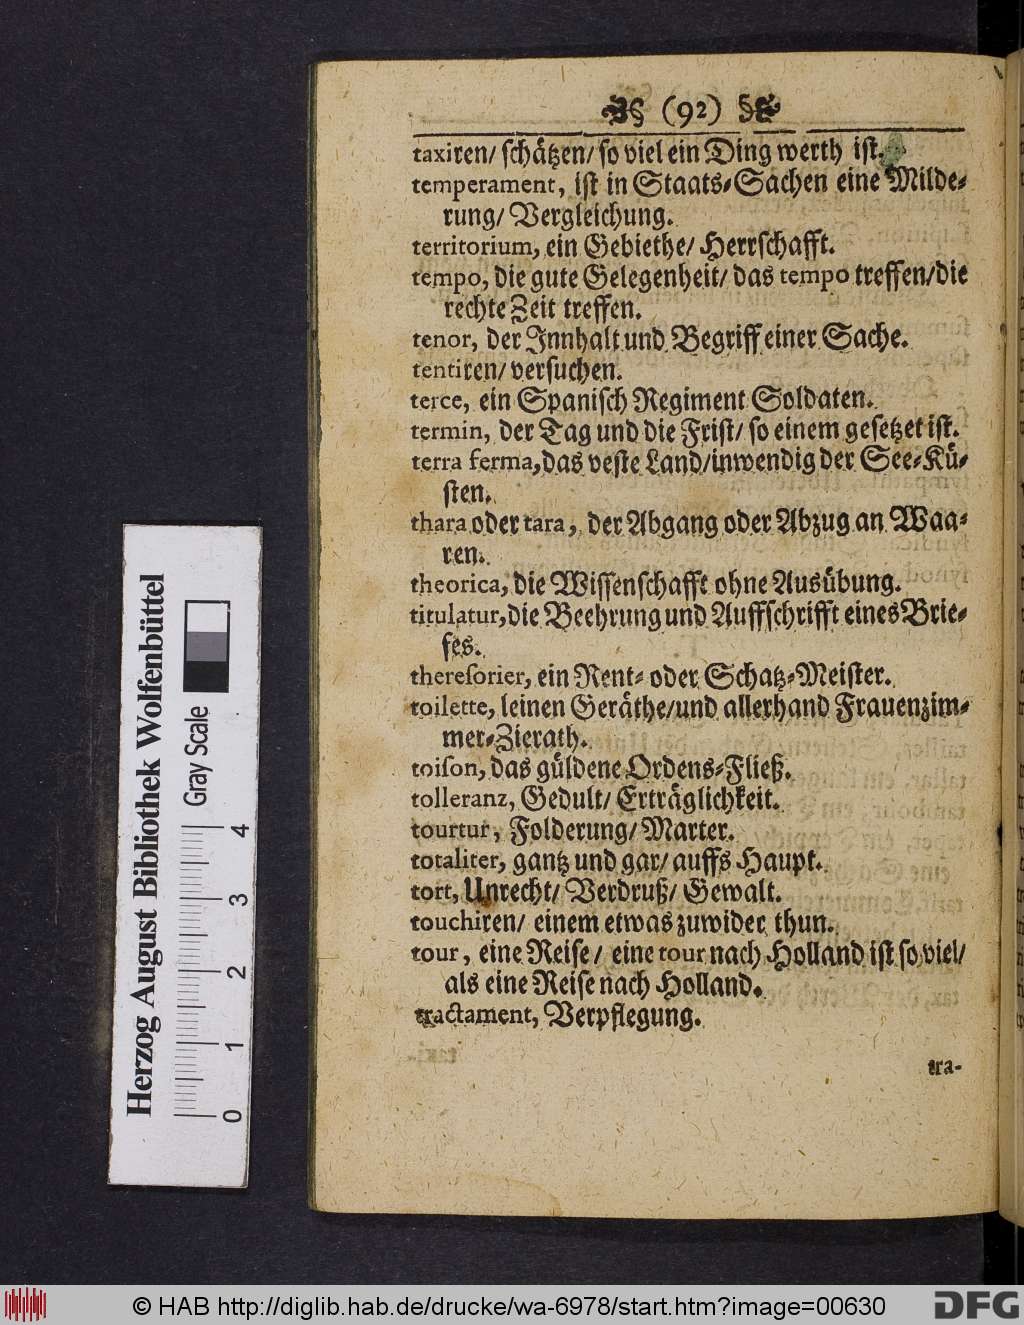 (92)
taxiren/ schätzen/ so viel ein Ding werth ist.
temperament, ist in Staats-Sachen eine Milde-
rung/ Vergleichung.
territorium, ein Gebiethe/ Herrschafft.
tempo, die gute Gelegenheit/ das tempo treffen/die
rechte Zeit treffen.
tenor, der Innhalt und Begriff einer Sache.
tentiren/ versuchen.
terce, ein Spanisch Regiment Soldaten.
termin, der Tag und die Frist/ so einem gesetzet ist.
terra ferma,das veste Land/inwendig der See-Kü-
sten.
thara oder tara, der Abgang oder Abzug an Waa-
ren.
theorica, die Wissenschafft ohne Ausübung.
titulatur,die Beehrung und Auffschrifft eines Brie-
fes.
theresorier, ein Rent- oder Schatz-Meister.
toilette, leinen Geräthe/und allerhand Frauenzim-
mer-Zierath.
toison, das güldene Ordens-Fließ.
tolleranz, Gedult/ Erträglichkeit.
tourtur, Folderung/ Marter.
totaliter, gantz und gar/ auffs Haupt.
tort, Unrecht/ Verdruß/ Gewalt.
touchiren/ einem etwas zuwider thun.
tour, eine Reise/ eine tour nach Holland ist so viel/
als eine Reise nach Holland.
tractament, Verpflegung.
tra-
Herzog August Bibliothek Wolfenbüttel
Gray Scale
0 1 2 3 4
© HAB http://diglib.hab.de/drucke/wa-6978/start.htm?image=00630
DFG